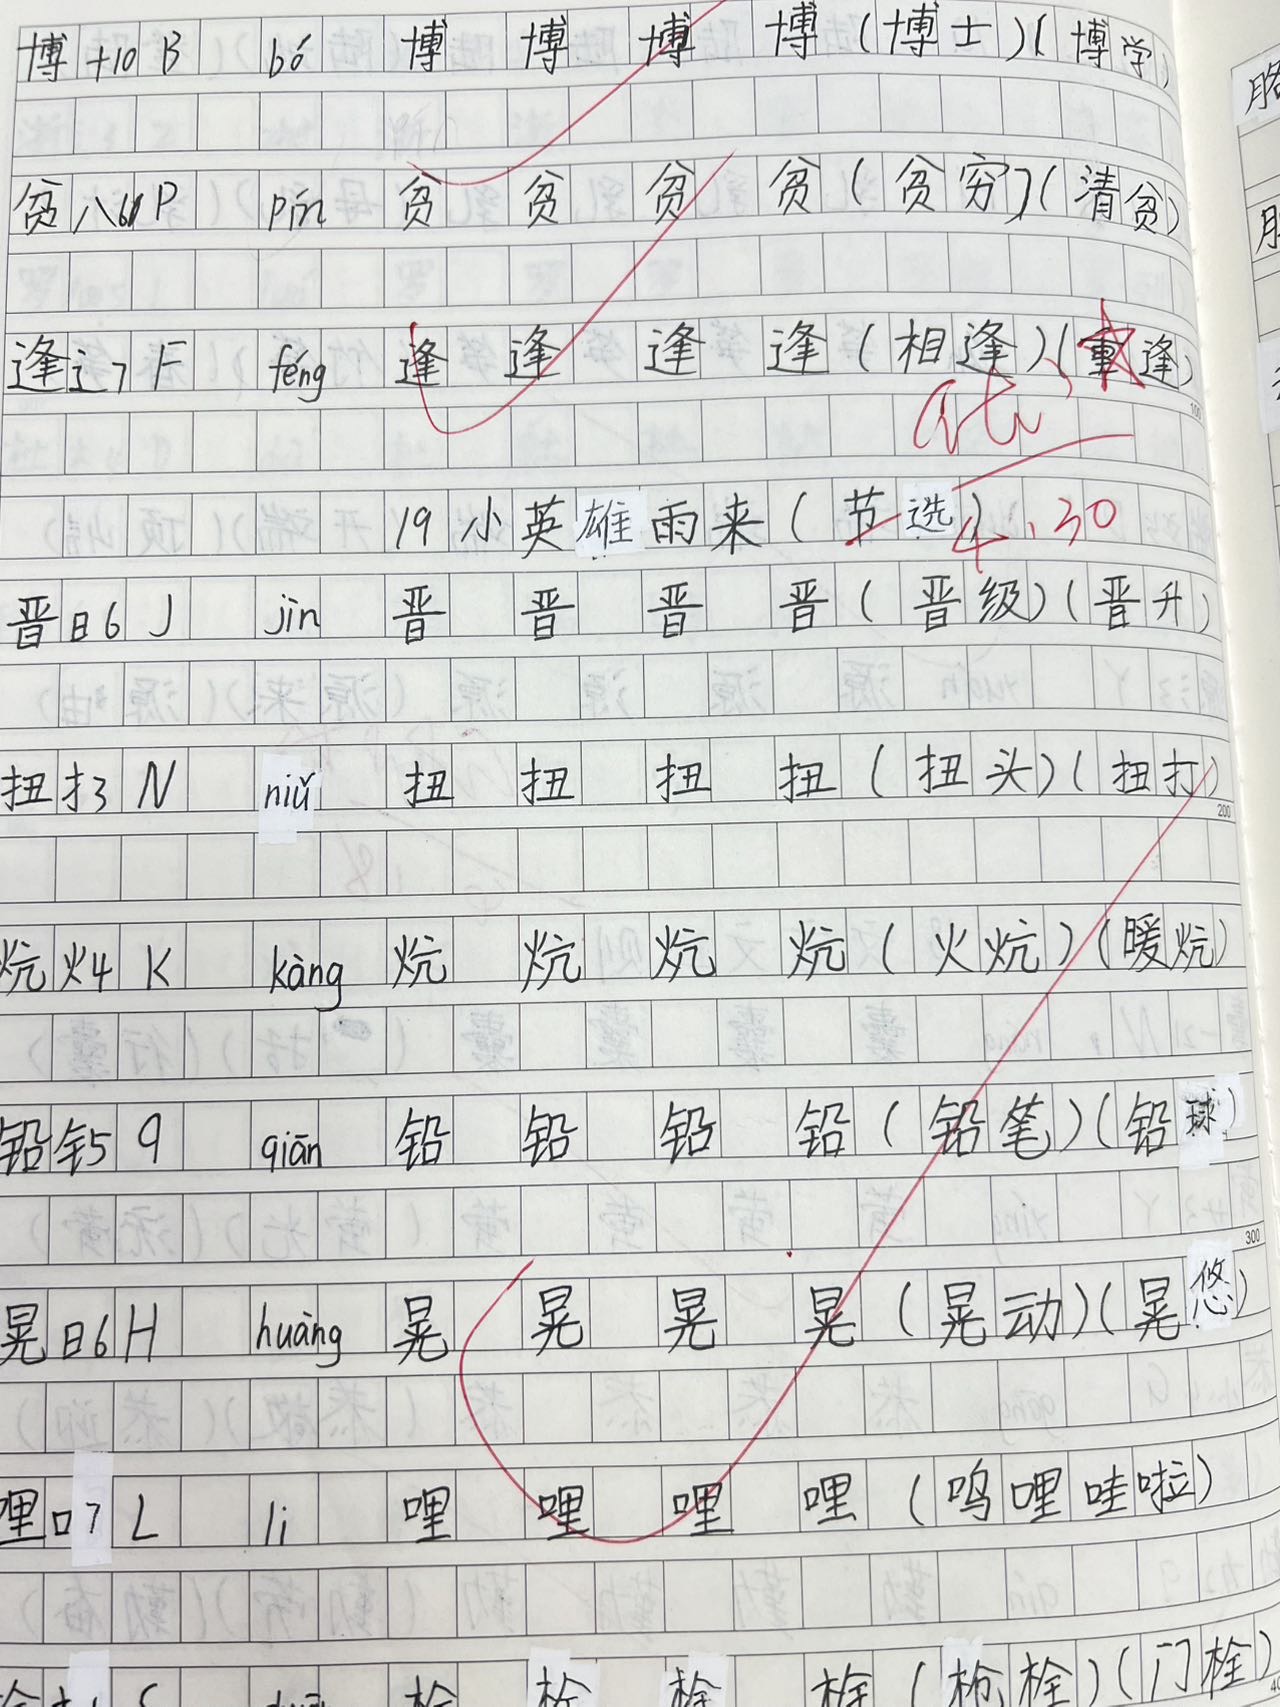 博 十10 B bó 博 博 博 博 (博士)(博学)
贫 八6 P pín 贫 贫 贫 贫 (贫穷)(清贫)
逢 辶7 F féng 逢 逢 逢 逢 (相逢)(重逢)
19 小英雄雨来 (节选)
4.30
晋 日6 J jìn 晋 晋 晋 晋 (晋级)(晋升)
200
扭 扌3 N niǔ 扭 扭 扭 扭 (扭头)(扭打)
炕 火4 K kàng 炕 炕 炕 炕 (火炕)(暖炕)
铅 钅5 q qiān 铅 铅 铅 铅 (铅笔)(铅球)
300
晃 日6 H huàng 晃 晃 晃 晃 (晃动)(晃悠)
哩 口7 L li 哩 哩 哩 哩 (呜哩哇啦)
栓 栓 栓 栓 (枪栓)(门栓)